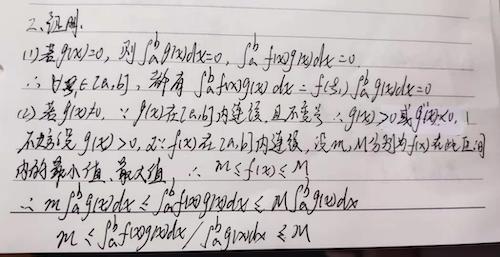 二、证明.
(1) 若g(x)=0, 则∫ₐᵇg(x)dx=0, ∫ₐᵇf(x)g(x)dx=0
∴ ∀ξ∈[a,b], 都有 ∫ₐᵇf(x)g(x)dx = f(ξ)∫ₐᵇg(x)dx=0
(2) 若g(x)≠0, ∵ g(x)在[a,b]内连续, 且不变号 ∴g(x)>0或g(x)<0,
不妨设g(x)>0, 又∵f(x)在[a,b]内连续, 设m,M分别为f(x)在此区间
内的最小值、最大值, ∴ m≤f(x)≤M
∴ m∫ₐᵇg(x)dx ≤ ∫ₐᵇf(x)g(x)dx ≤ M∫ₐᵇg(x)dx
m ≤ ∫ₐᵇf(x)g(x)dx / ∫ₐᵇg(x)dx ≤ M